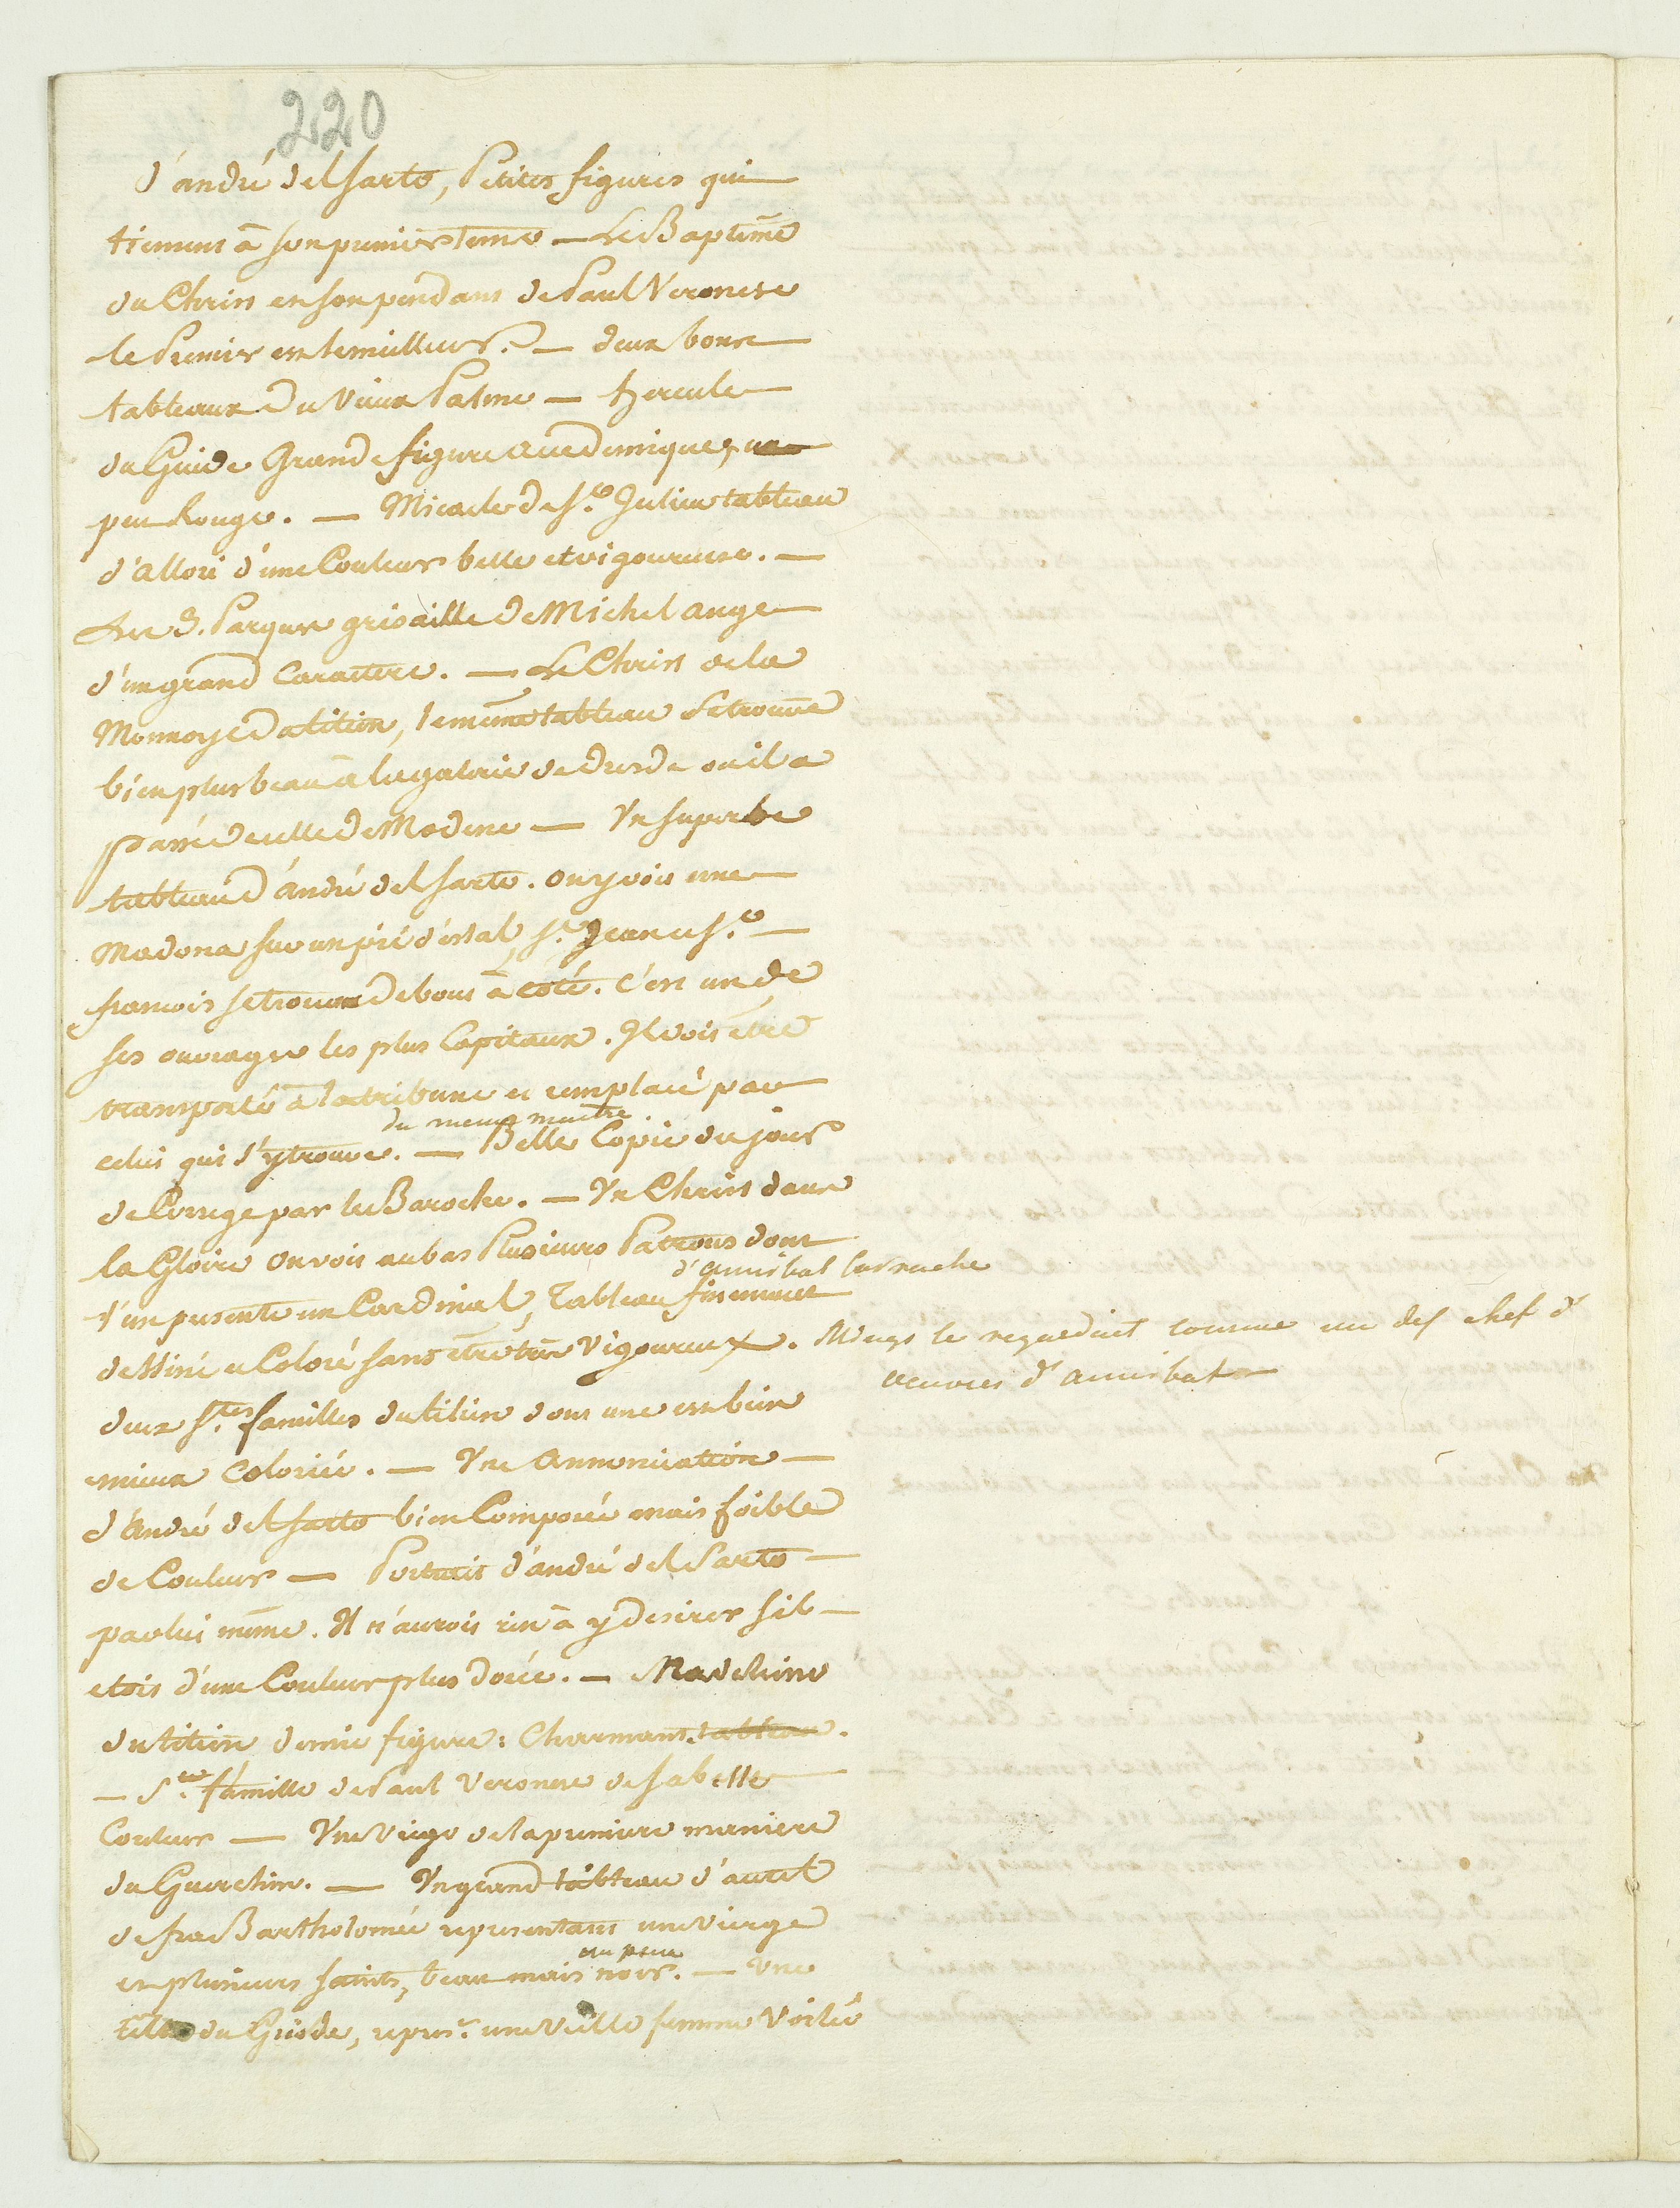 220
d'andré del Sarto, Petites figures qui
tiennent à son premier tems — Le Baptême
du Christ et son pendant de Paul Veronese
le Premier est le meilleur. — deux bons
tableaux du Vieux Palme — Hercule
du Guide Grande figure academique, un
peu Rouge. — Miracle de St. Julien tableau
d'Allori d'une Couleur belle et vigoureuse. —
Les 3. Parques grisaille de Michel ange
d'un grand Caractere. — Le Christ de la
Monnoye du titien, le même tableau se trouve
bien plus beau à la galerie de dresde ou il a
passé de celle de Modene — Un superbe
tableau d'andré del Sarto. on y voit une
Madona sur un pié d'estal, St. Jean et St.
francois se trouvent debout à coté. C'est un de
ses ouvrages les plus Capitaux. Il doit être
transporté à la tribune et remplacé par
celui qui s'y trouve. du meme maitre. — Belle Copie du jour
de Correge par le Baroche. — Un Christ dans
la Gloire on voit au bas Plusieurs Patrons dont
l'un presente un Cardinal, Tableau d'Annibal Carrache finement
dessiné et Coloré sans être très Vigoureux. Mengs le regardait comme un des chef d'
oeuvres d'Annibal
deux Stes familles du titien dont une est bien
mieux Coloriée. — Une Annonciation —
d'André del Sarto bien Composée mais foible
de Couleur — Portrait d'andré del Sarto —
par lui même. Il n'aurois rien à y desirer s'il
etois d'une Couleur plus dorée. — Madeleine
du titien demie figure: Charmant tableau.
— Ste famille de Paul Veronese de sa belle
Couleur — Une Vierge de la premiere maniere
du Guerchin. — Un grand tableau d'autel
de fra Bartholomée representant une vierge
et plusieurs saints, beau mais un peu noir. — Une
tête du Guide, repres.t une vieille femme Voilée